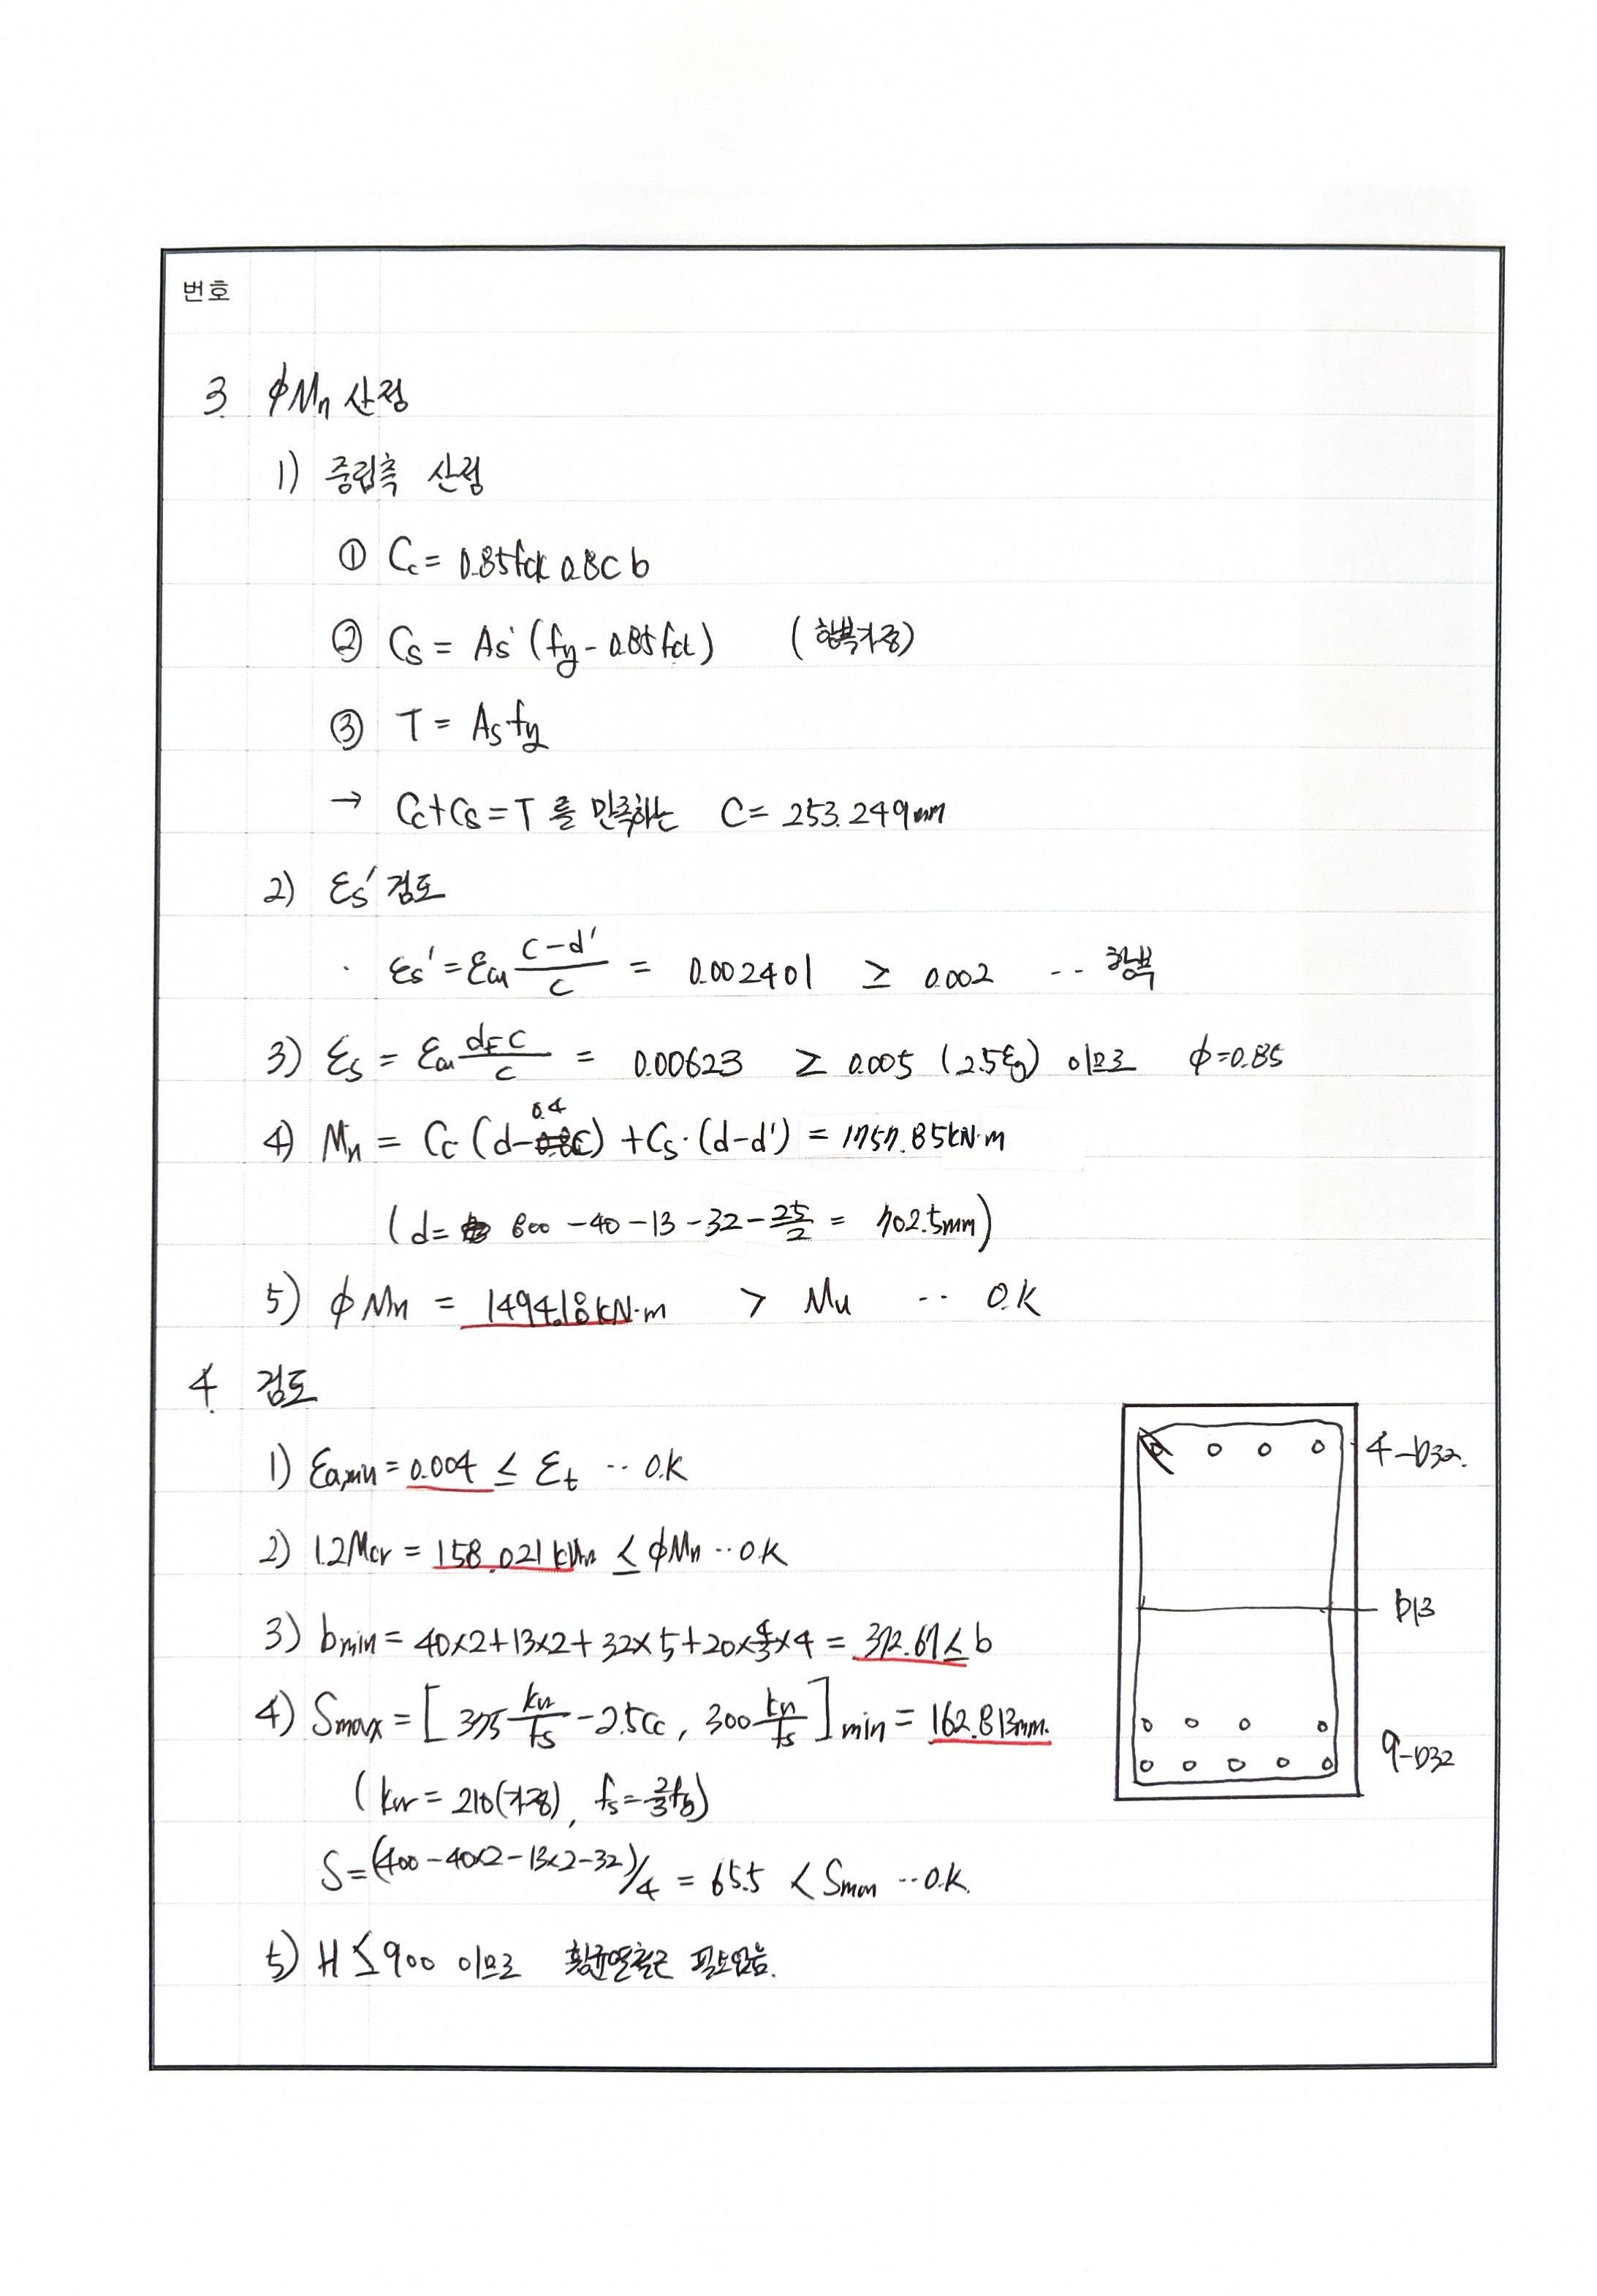 번호
3. ϕMn 산정
1) 중립축 산정
① Cc = 0.85fck 0.8c b
② Cs = As' (fy - 0.85fck) (항복가정)
③ T = Asfy
→ Cc+Cs = T 를 만족하는 C = 253.249mm
2) εs' 검토
· εs' = εcu (c-d')/c = 0.002401 ≥ 0.002 ‥ 항복
3) εs = εcu (dt-c)/c = 0.00623 ≥ 0.005 (2.5εy) 이므로 ϕ=0.85
4) Mn = Cc (d-0.4c) + Cs·(d-d') = 1757.85kN·m
(d= 800 -40 -13 -32 - 25/2 = 702.5mm)
5) ϕMn = 1494.18kN·m > Mu ‥ O.K
4. 검토
1) εa,min = 0.004 ≤ εt ‥ O.K
2) 1.2Mcr = 158.021kNm ≤ ϕMn ‥ O.K
3) bmin = 40×2+13×2+32×5+20×4/3×4 = 372.67 ≤ b
4) Smax = [375 kcr/fs - 2.5Cc, 300 kcr/fs]min = 162.813mm.
(kcr = 210(가정), fs = 2/3fy)
S = (400 - 40×2 - 13×2 - 32)/4 = 65.5 < Smax ‥ O.K.
5) H ≤ 900 이므로 횡균열철근 필요없음.
4-D32.
D13
9-D32